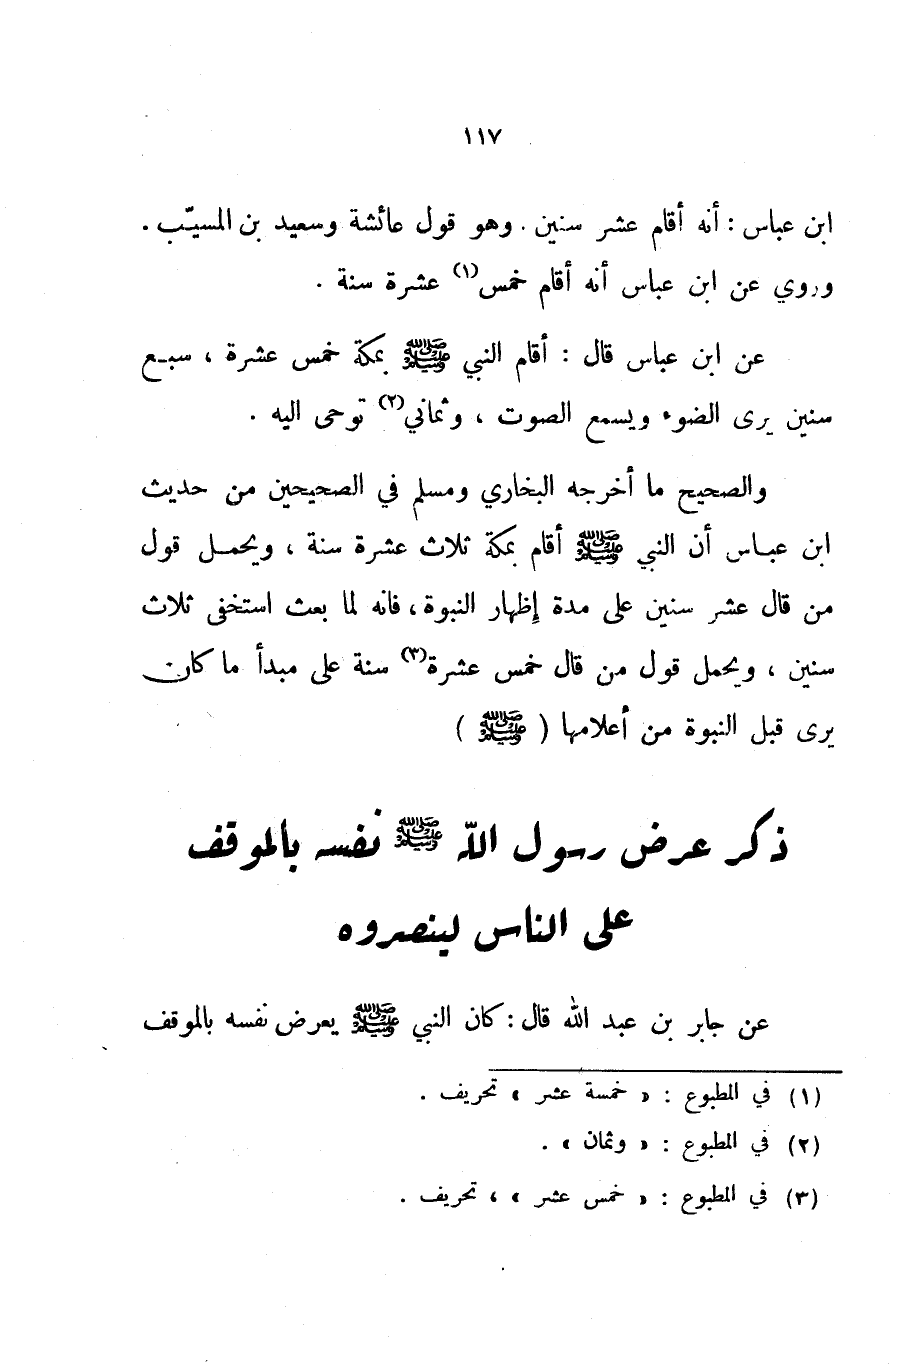 ١١٧
ابن عباس : أنه أقام عشر سنين . وهو قول عائشة وسعيد بن المسيّب .
وروي عن ابن عباس أنه أقام خمس(١) عشرة سنة .
عن ابن عباس قال : أقام النبي ﷺ بمكة خمس عشرة ، سبع
سنين يرى الضوء ويسمع الصوت ، وثماني(٢) توحى اليه .
والصحيح ما أخرجه البخاري ومسلم في الصحيحين من حديث
ابن عباس أن النبي ﷺ أقام بمكة ثلاث عشرة سنة ، ويحمل قول
من قال عشر سنين على مدة إظهار النبوة ، فانه لما بعث استخفى ثلاث
سنين ، ويحمل قول من قال خمس عشرة(٣) سنة على مبدأ ما كان
يرى قبل النبوة من أعلامها ( ﷺ )
ذكر عرض رسول الله ﷺ نفسه بالموقف
على الناس لينصروه
عن جابر بن عبد الله قال : كان النبي ﷺ يعرض نفسه بالموقف
(١) في المطبوع : « خمسة عشر » تحريف .
(٢) في المطبوع : « وثمان » .
(٣) في المطبوع : « خمس عشر » ، تحريف .